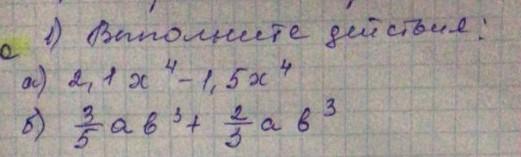 с 1) Выполните действия:
а) 2,1x⁴-1,5x⁴
б) 3/5 ab³+ 2/3 ab³